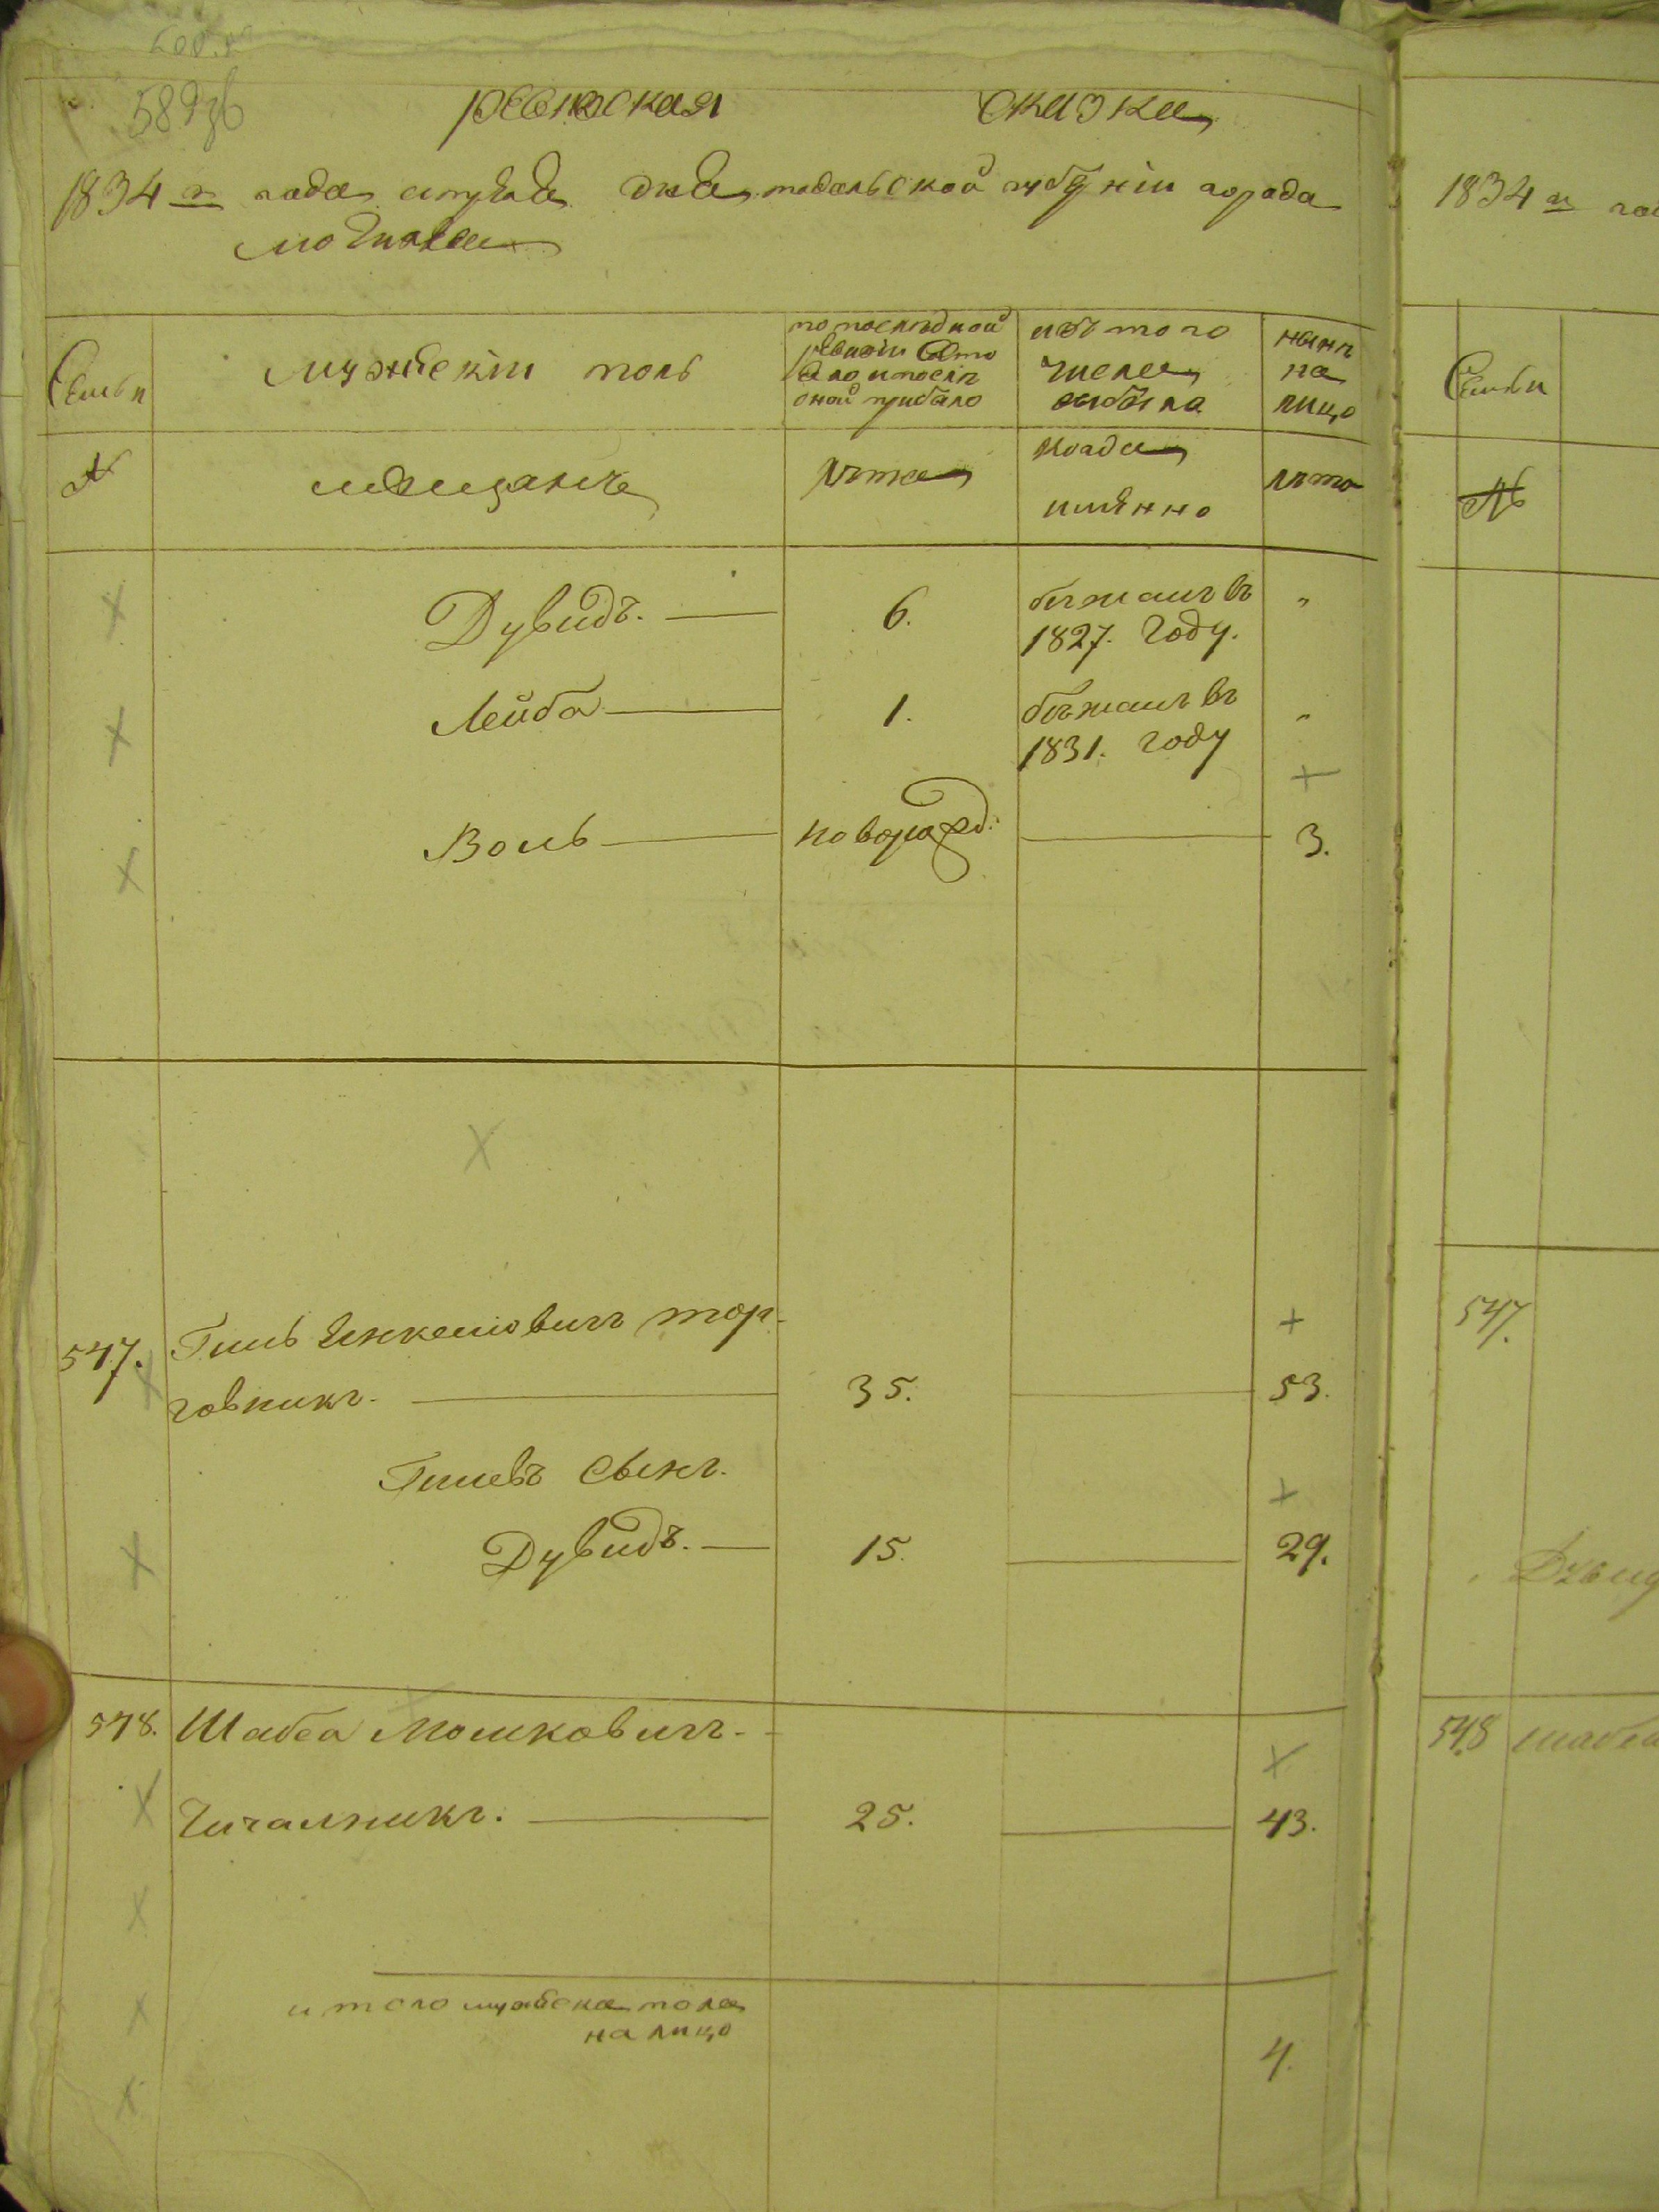 589зв
ревизская сказка
1834 г года апреля дня подольской губерніи города
могилева
Семьи
мужескій полъ
по последной
ревизіи состо
яло и после
оной прибыло
изъ того
числа
выбыло
ныне
на
лицо
№
мещане
лета
когда
имянно
лета
Дувидъ. 6. бежалъ въ
1827. году. "
Лейба 1. бежалъ въ
1831. году "
Воль новорожд: 3.
547. Гиль тор-
говникъ. 35. 53.
Гилевъ Сынъ.
Дувидъ. 15. 29.
548. Шабса Мошковичъ.
25. 43.
итого мужеска пола
на лицо
4.
1834 г
Семьи
№
547.
Дувид
548 шабса